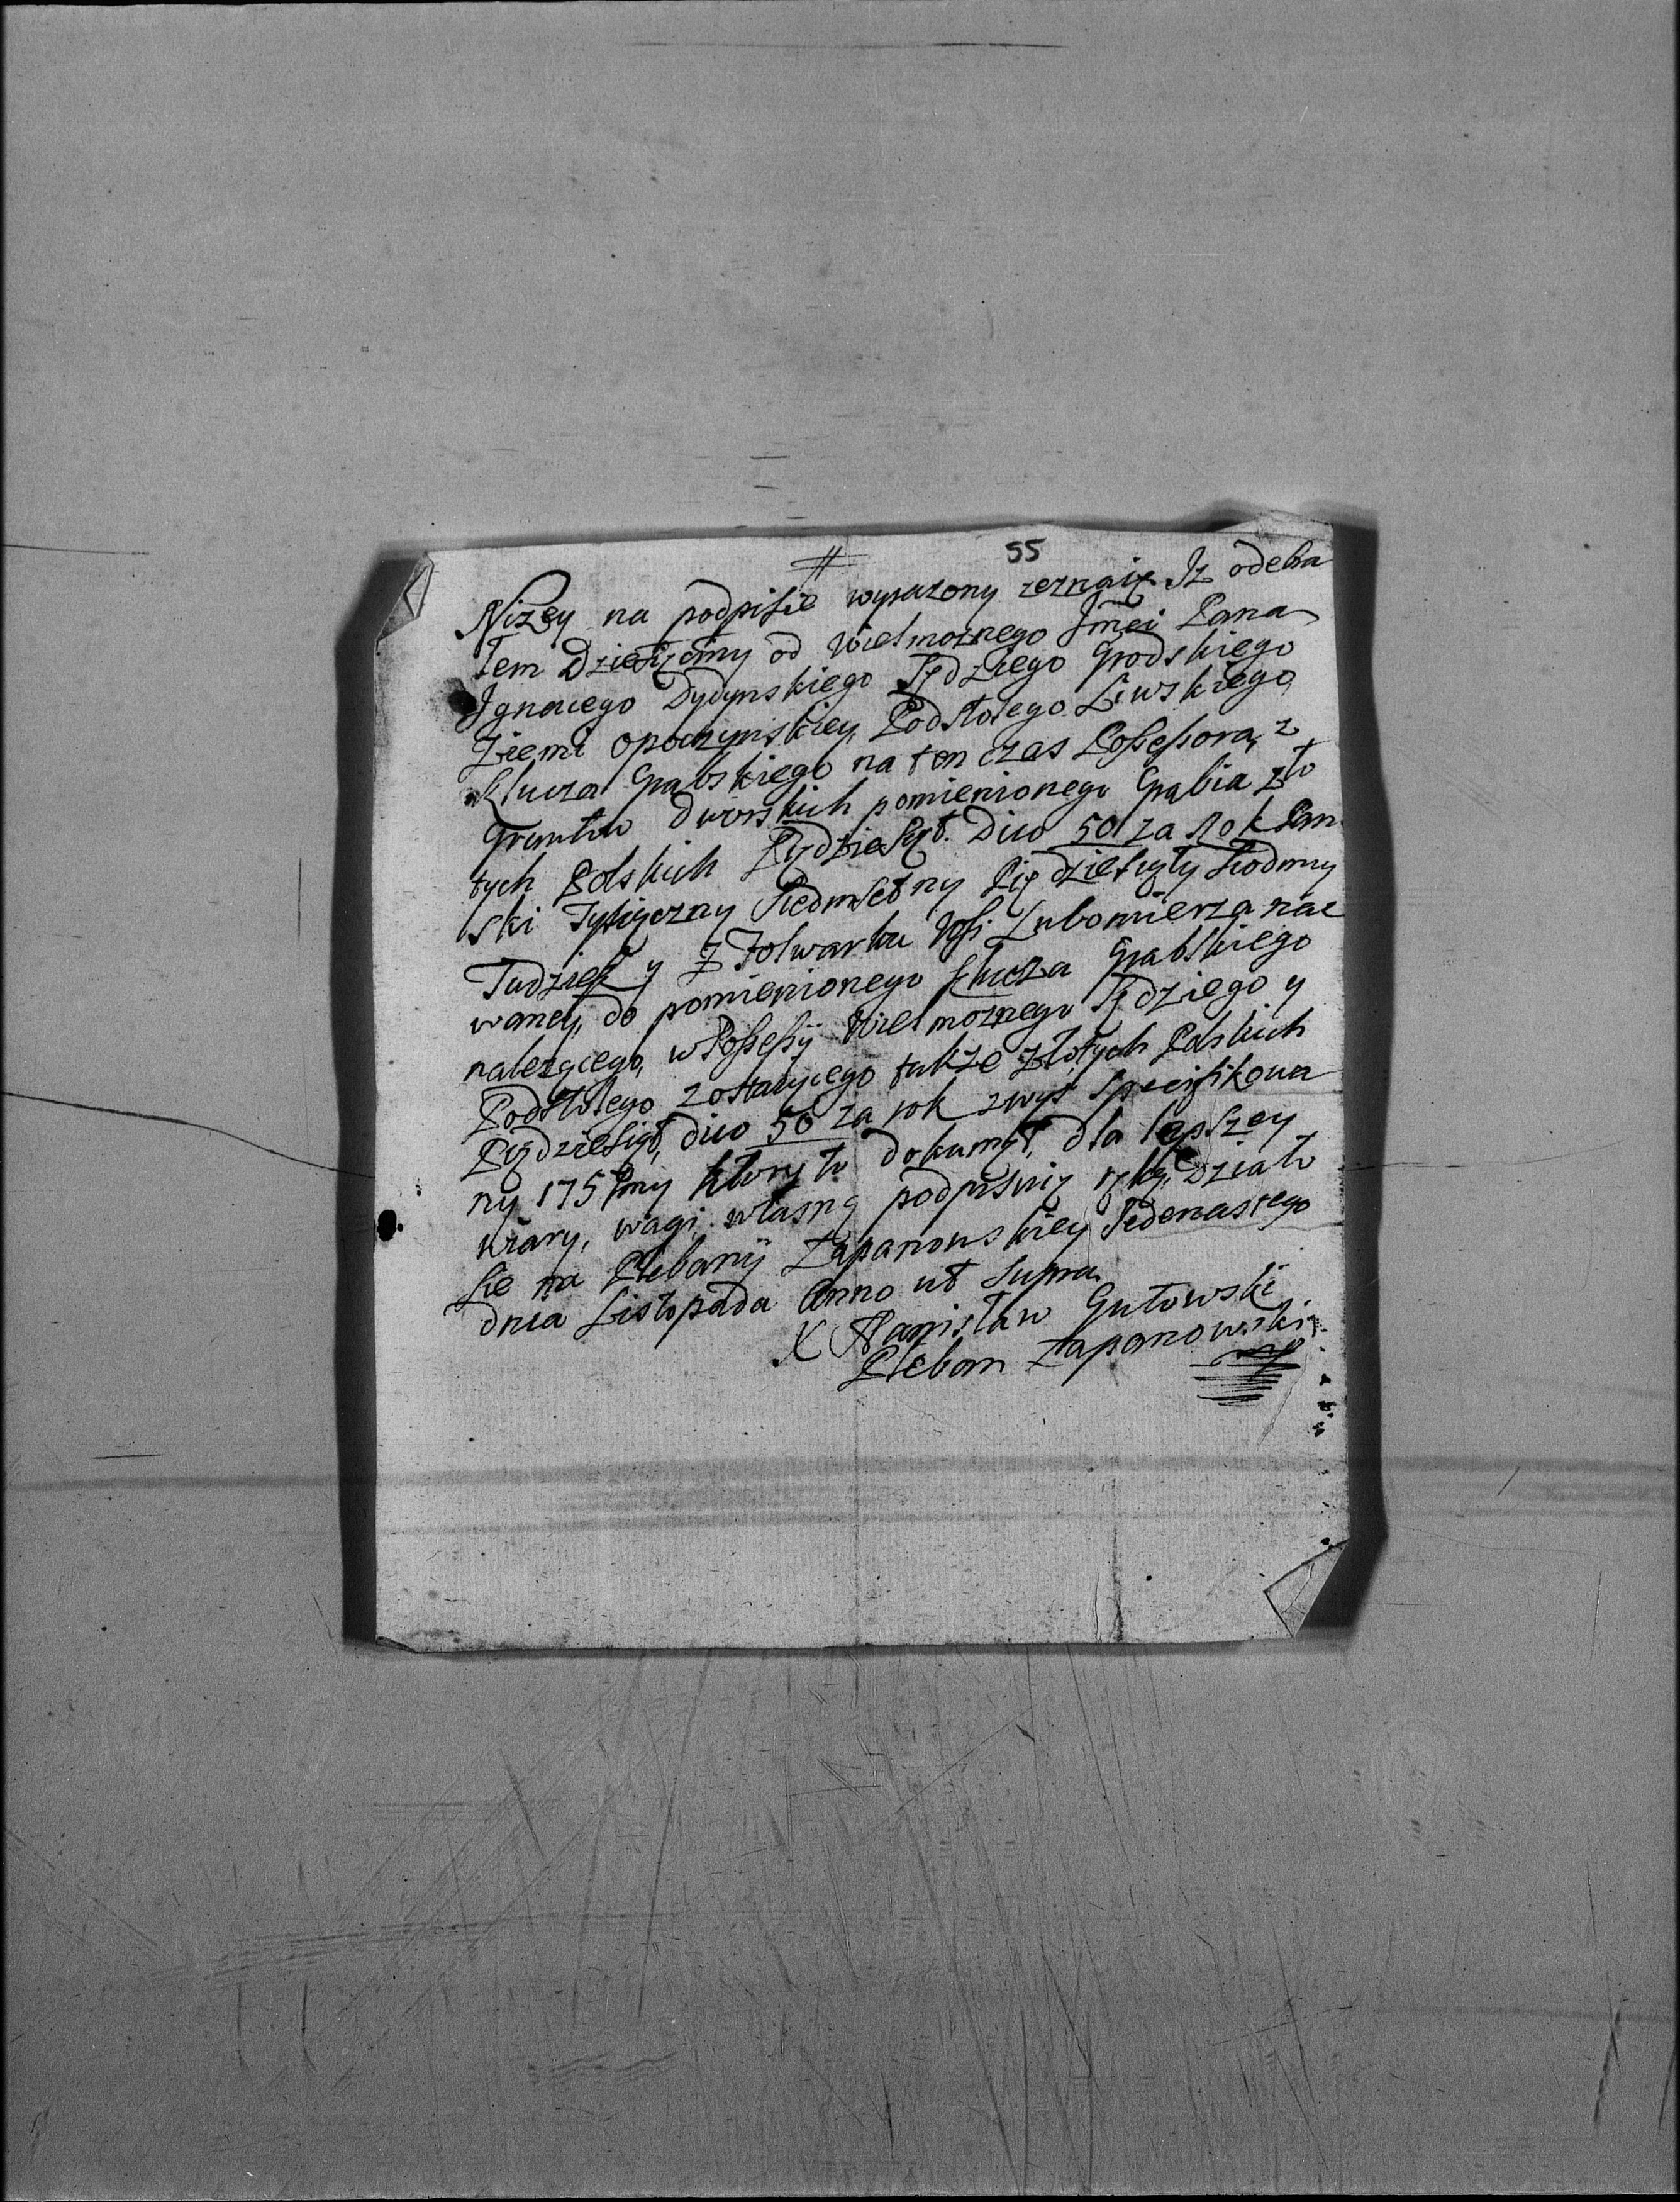 55
Nizey na podpisie wyrazony zeznaię Iz odebra
łem Dziesięciny od Wielmoznego Jmci Pana
Ignacego Dydynskiego Sędziego Grodskiego
Ziemi opoczynskiey, Podstolego Liwskiego
Klucza Grabskiego na ten czas Possessora, z
Gruntow Dworskich pomienionego Grabia zło
tych Polskich Piędziesiąt. Dico 50 za Rok Pan
ski Tysiączny Siedmsetny Piędziesiąty Siodmy
Tudziesz y z Folwarku Wsi Lubomierza naz
waney, do pomienionego Klucza Grabskiego
nalezącego, w Possessij Wielmoznego Sędziego y
Podstolego zostaiącego także złotych Polskich
Piędziesiąt, dico 50 za rok zwysz specifikowa
ny 1757my ktory to dokumęt, dla lepszey
wiary, wagi własną podpisuię ręką, działo
sie na Plebanij Łapanowskiey Jedenastego
dnia Listopada Anno ut Supra
X Stanisław Gutowski
Pleban Łapanowski